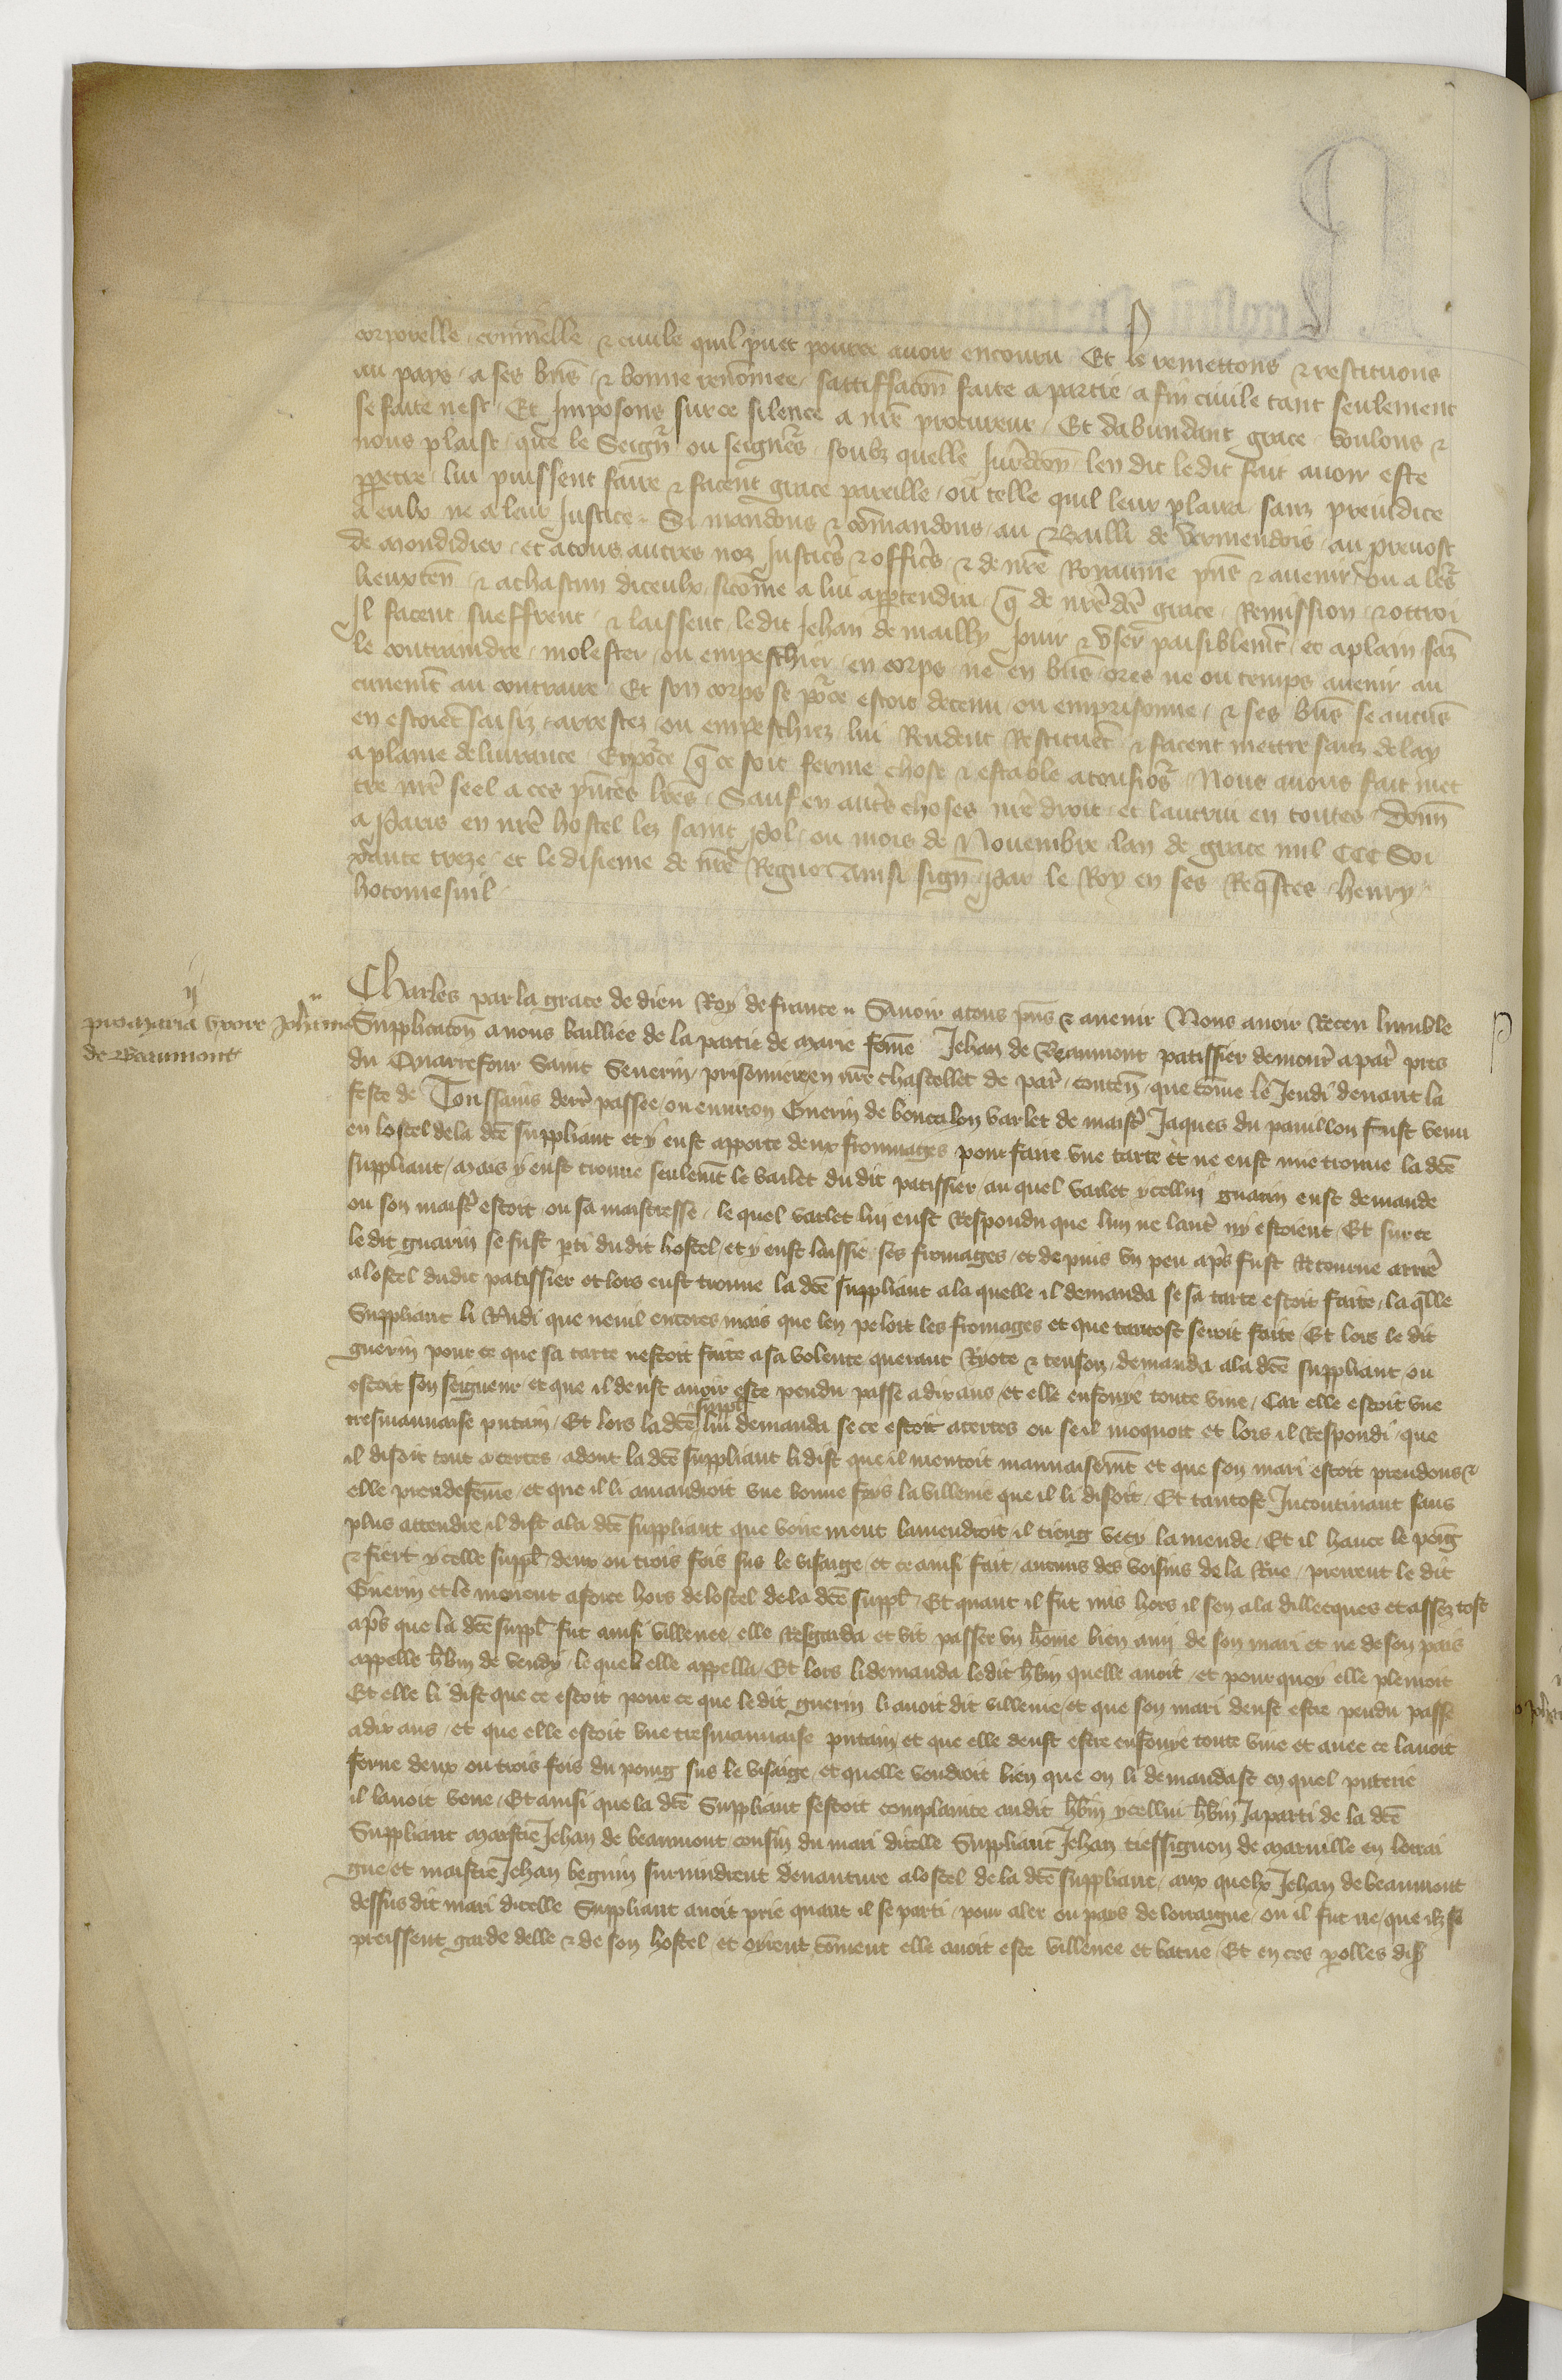 corporelle criminelle & civile quil puet pource avoir encouru Et le remettons & restituons
au pays a ses bñs & bonne renõmee sattiffacõn faite a partie a fin civile tant seulement
se faite nest Et Imposons sur ce silence a nr̃e procureur Et dabundant grace voulons &
nous plaist que le Seign̄r ou seigñrs soubz quelle Jurĩdcõn len dit ledit fait avoir este
ppetre lui puissent faire & facent grace pareille ou telle quil leur plaira sanz preiudice
a eulx ne a leur Justice Si mandons & cõmandons au Bailli de Vermendois au prevost
de mondidier et a tous autres noz Justicr̃s & officr̃s & de nr̃e Royaume pñs & avenir ou a lr̃s
lieuxteñ & a chascun diceulx sicõme a lui appertendra q̃ de nr̃e dc̃e grace Remission & ottroi
Il facent sueffrent & laissent ledit Jehan de mailly Jouir & user paisiblem̃t et a plain sãz
le contraindre molester ou empeschier en corps ne en bñs ores ne ou temps avenir au
cunem̃t au contraire Et son corps se põce estoit detenu ou emprisonne & ses bñs se aucũs
en estoiẽt saisiz arrestez ou empeschiez lui Rendent Restituẽt & facent mettre sanz delay
a plaine delivrance Et põce q̃ ce soit ferme chose & estable a tousiõrs Nous avons fait met
tre nr̃e seel a ces pñtes lr̃es Sauf en autr̃s choses nr̃e droit et lautrui en toutes Donñ
a Paris en nr̃e hostel lez saint Pol ou mois de Novembre lan de grace mil CCC Soi
xante treze et le disieme de nr̃e Regne Ainsi signẽ Par le Roy en ses Req̃stes henry
hotomesnil
ij
pro maria uxore Joh̃annis
de Beaumont
Charles par la grace de dieu Roy de france Savoir a tous pñs & avenir Nous avoir Receu lumble
Supplicacõn a nous bailliee de la partie de marie fẽme Jehan de Beaumont patissier demour̃ a par̃ pres
du Quarrefour Saint Severin prisonniere en nr̃e chastellet de par̃ conteñ que cõme le Jeudi devant la
feste de Toussains derr̃ passee ou environ Guerin de boncelon varlet de maistr̃ Jaques du pavillon fust venu
en lostel de la dc̃e suppliant et y eust apporte deux frommages pour faire une tarte et ne eust mie trouve la dc̃e
suppliant mais y eust trouve seulem̃t le varlet du dit patissier au quel varlet ycellui guarin eust demande
ou son maistr̃ estoit ou sa maistresse le quel varlet lui eust Respondu que lun ne lautr̃ ny estoient Et sur ce
ledit guarin se fust pti dudit hostel et y eust laissie ses fromages et depuis un peu apr̃s fust Retourne arrier̃
a lostel dudit patissier et lors eust trouve la dc̃e suppliant a la quelle il demanda se sa tarte estoit faite la q̃lle
Suppliant li Rñdi que nenil encores mais que len peloit les fromages et que tantost seroit faite Et lors le dit
guerin pour ce que sa tarte nestoit faite a sa volente querant Ryote & tenson demanda a la dc̃e suppliant ou
estoit son seigneur et que il deust avoir este pendu passe a dix ans et elle enfouye toute vive Car elle estoit une
tresmauvaise putain Et lors la dc̃e suppl̃ lui demanda se ce estoit acertes ou se il moquoit et lors il Respondi que
il disoit tout acertes adont la dc̃e suppliant li dist que il mentoit mauvaisem̃t et que son mari estoit preudons &
elle preudefẽme et que il li amandroit une bonne foys la villenie que il li disoit Et tantost Incontinant sans
plus attendre il dist a la dc̃e suppliant que voirement lamendroit il tieng vecy lamende Et il hauce le poĩg
& fiert ycelle suppl̃ deux ou trois fois sus le visaige et ce ainsi fait aucuns des voisins de la Rue prirent le dit
Guerin et le mirent a force hors de lostel de la dc̃e suppl̃ Et quant il fut mis hors il sen ala dillecques et assez tost
apr̃s que la dc̃e suppl̃ fut ainsi villenee elle Resgarda et vit passer un hõme bien ami de son mari et ne de son pais
appelle h̃bin de vendy le quel elle appella Et lors li demanda ledit h̃bin quelle avoit et pour quoy elle plouroit
Et elle li dist que ce estoit pour ce que le dit guerin li avoit dit villenie et que son mari deust estre pendu passe
a dix ans et que elle estoit une tresmauvaise putain et que elle deust estre enfouye toute vive et avec ce lavoit
ferue deux ou trois fois du poing sus le visaige et quelle vendroit bien que on li demandast en quel puterie
il lavoit veue Et ainsi que la dc̃e Suppliant sestoit complainte audit h̃bin ycellui h̃bin Ja parti de la dc̃e
Suppliant maistre Jehan de beaumont cousin du mari dicelle Suppliant Jehan tiessignon de marville en lorrai
gne et maistre Jehan beguin survindrent davanture a lostel de la dc̃e suppliant aux quelx Jehan de beaumont
dessus dit mari dicelle Suppliant avoit prie quant il se parti pour aler ou pays de lorraigne ou il fut ne que ilz se
preissent garde delle & de son hostel et oyrent cõment elle avoit este villenee et batue Et en ces p̃olles dis̃